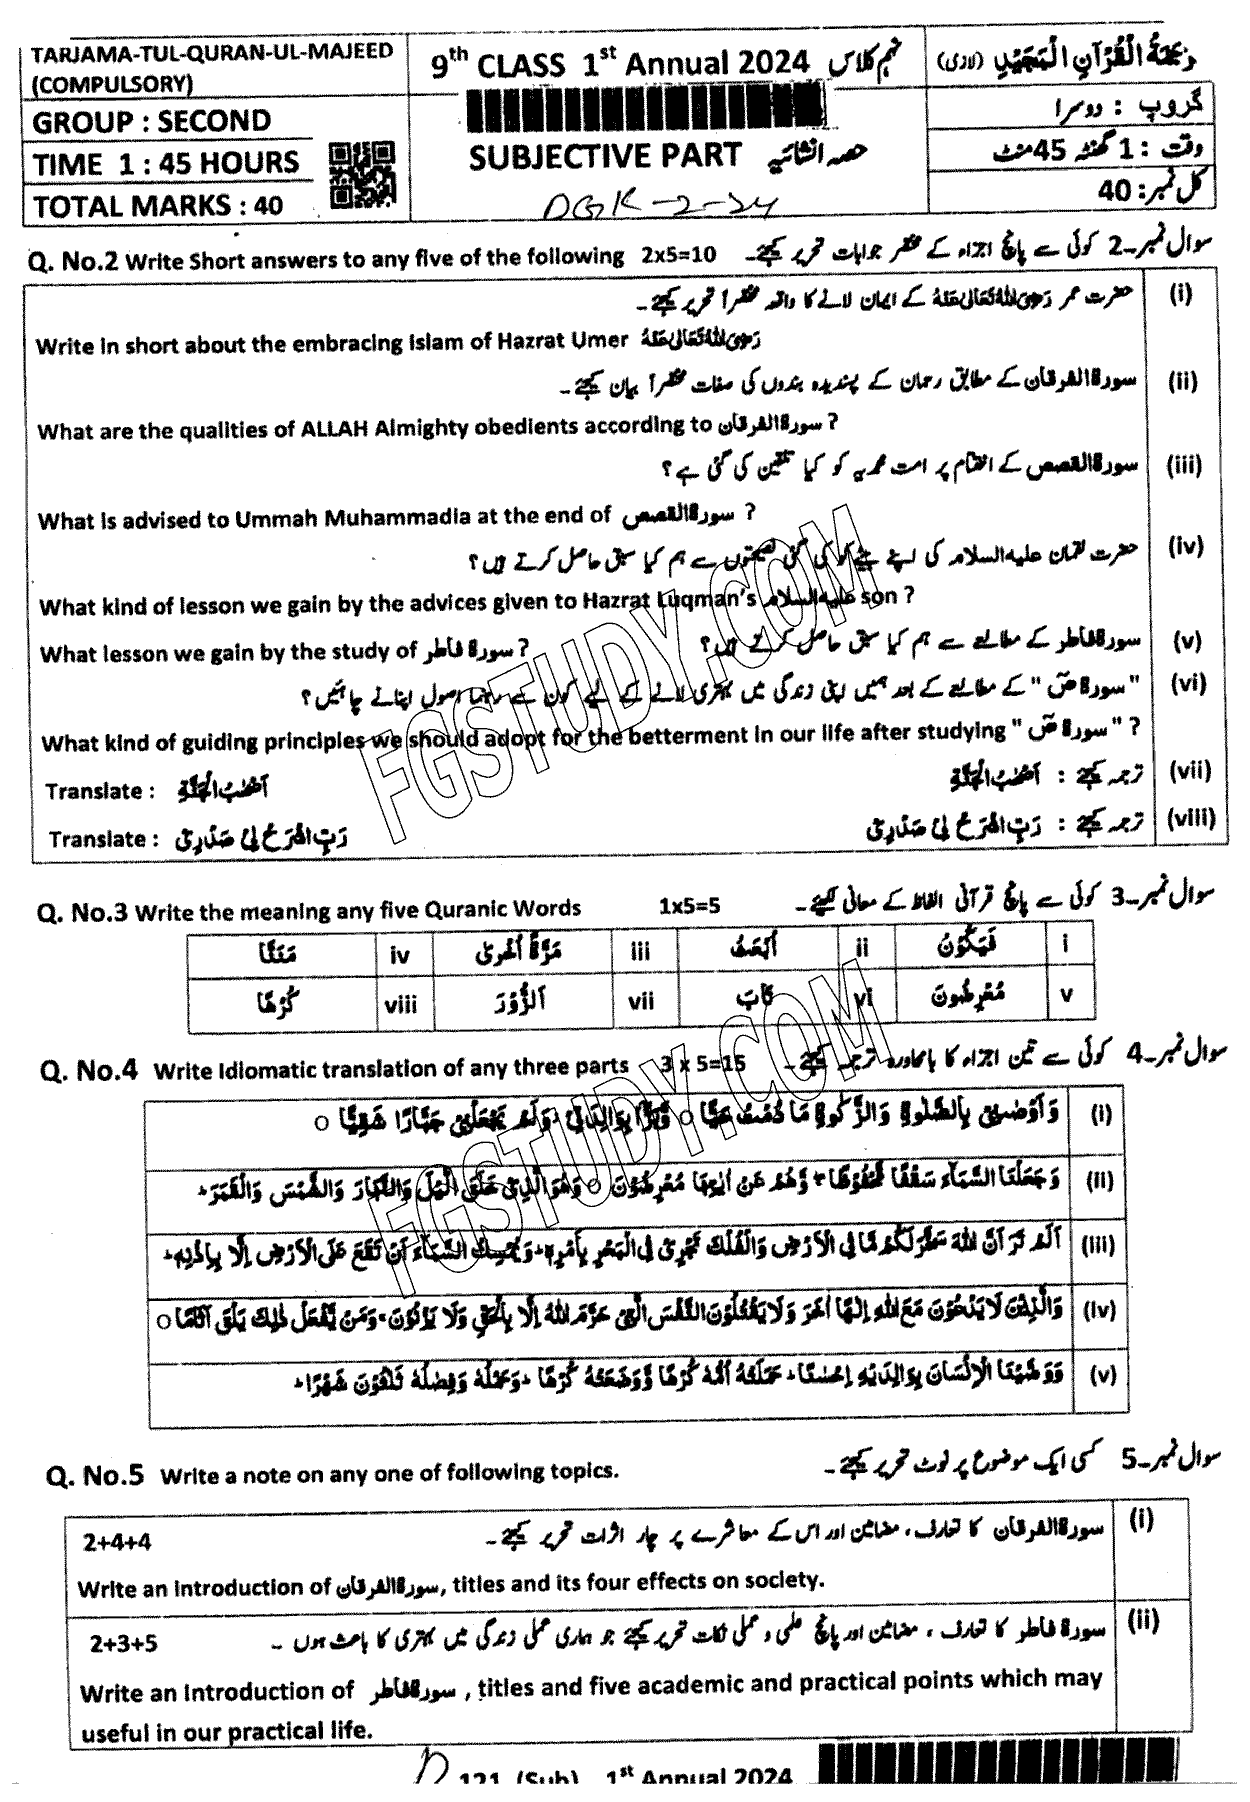 TARJAMA-TUL-QURAN-UL-MAJEED
(COMPULSORY)
GROUP : SECOND
TIME 1 : 45 HOURS
TOTAL MARKS : 40
9th CLASS 1st Annual 2024 نہم کلاس
SUBJECTIVE PART حصہ انشائیہ
DGK-2-24
تَرْجَمَۃُ الْقُرْآنِ الْمَجِیْدِ (لازمی)
گروپ : دوسرا
وقت : 1 گھنٹہ 45 منٹ
کل نمبر : 40
Q. No.2 Write Short answers to any five of the following 2x5=10 سوال نمبر۔2 کوئی سے پانچ اجزاء کے مختصر جوابات تحریر کیجئے۔
(i) حضرت عمر رَضِیَ اللّٰہُ تَعَالٰی عَنْہُ کے ایمان لانے کا واقعہ مختصراً تحریر کیجئے۔
Write in short about the embracing Islam of Hazrat Umer رَضِیَ اللّٰہُ تَعَالٰی عَنْہُ
(ii) سورۃ الفرقان کے مطابق رحمان کے پسندیدہ بندوں کی صفات مختصراً بیان کیجئے۔
What are the qualities of ALLAH Almighty obedients according to سورۃ الفرقان ?
(iii) سورۃ القصص کے اختتام پر امت محمدیہ کو کیا تلقین کی گئی ہے؟
What is advised to Ummah Muhammadia at the end of سورۃ القصص ?
(iv) حضرت لقمان علیہ السلام کی اپنے بیٹے کو کی گئی نصیحتوں سے ہم کیا سبق حاصل کرتے ہیں؟
What kind of lesson we gain by the advices given to Hazrat Luqman's علیہ السلام son ?
What lesson we gain by the study of سورۃ فاطر ? (v) سورۃ فاطر کے مطالعے سے ہم کیا سبق حاصل کرتے ہیں؟
(vi) "سورۃ صٓ" کے مطالعے کے بعد ہمیں اپنی زندگی میں بہتری لانے کے لیے کون سے رہنما اصول اپنانے چاہئیں؟
What kind of guiding principles we should adopt for the betterment in our life after studying "سورۃ صٓ" ?
Translate : اَصْحٰبُ الْجَنَّةِ (vii) ترجمہ کیجئے : اَصْحٰبُ الْجَنَّةِ
Translate : رَبِّ اشْرَحْ لِیْ صَدْرِیْ (viii) ترجمہ کیجئے : رَبِّ اشْرَحْ لِیْ صَدْرِیْ
Q. No.3 Write the meaning any five Quranic Words 1x5=5 سوال نمبر۔3 کوئی سے پانچ قرآنی الفاظ کے معانی لکھیئے۔
i فَیَکُوْنُ ii اَبْعَثُ iii مَرَّةً اُخْرٰی iv مَنَنَّا
v مُعْرِضُوْنَ vi تَابَ vii اَلزُّوْرَ viii کُرْهًا
Q. No.4 Write Idiomatic translation of any three parts 3 x 5=15 سوال نمبر۔4 کوئی سے تین اجزاء کا بامحاورہ ترجمہ کیجئے۔
(i) وَ اَوْصٰنِیْ بِالصَّلٰوةِ وَ الزَّکٰوةِ مَا دُمْتُ حَیًّا ○ وَّ بَرًّۢا بِوَالِدَتِیْ وَ لَمْ یَجْعَلْنِیْ جَبَّارًا شَقِیًّا ○
(ii) وَ جَعَلْنَا السَّمَآءَ سَقْفًا مَّحْفُوْظًا وَّ هُمْ عَنْ اٰیٰتِهَا مُعْرِضُوْنَ ○ وَ هُوَ الَّذِیْ خَلَقَ الَّیْلَ وَ النَّهَارَ وَ الشَّمْسَ وَ الْقَمَرَ
(iii) اَلَمْ تَرَ اَنَّ اللّٰهَ سَخَّرَ لَکُمْ مَّا فِی الْاَرْضِ وَ الْفُلْکَ تَجْرِیْ فِی الْبَحْرِ بِاَمْرِهٖ وَ یُمْسِکُ السَّمَآءَ اَنْ تَقَعَ عَلَی الْاَرْضِ اِلَّا بِاِذْنِهٖ
(iv) وَ الَّذِیْنَ لَا یَدْعُوْنَ مَعَ اللّٰهِ اِلٰهًا اٰخَرَ وَ لَا یَقْتُلُوْنَ النَّفْسَ الَّتِیْ حَرَّمَ اللّٰهُ اِلَّا بِالْحَقِّ وَ لَا یَزْنُوْنَ وَ مَنْ یَّفْعَلْ ذٰلِکَ یَلْقَ اَثَامًا ○
(v) وَ وَصَّیْنَا الْاِنْسَانَ بِوَالِدَیْهِ اِحْسٰنًا حَمَلَتْهُ اُمُّهٗ کُرْهًا وَّ وَضَعَتْهُ کُرْهًا وَ حَمْلُهٗ وَ فِصٰلُهٗ ثَلٰثُوْنَ شَهْرًا
Q. No.5 Write a note on any one of following topics. سوال نمبر۔5 کسی ایک موضوع پر نوٹ تحریر کیجئے۔
2+4+4 (i) سورۃ الفرقان کا تعارف، مضامین اور اس کے معاشرے پر چار اثرات تحریر کیجئے۔
Write an introduction of سورۃ الفرقان, titles and its four effects on society.
2+3+5 (ii) سورۃ فاطر کا تعارف، مضامین اور پانچ علمی و عملی نکات تحریر کیجئے جو ہماری عملی زندگی میں بہتری کا باعث ہوں۔
Write an introduction of سورۃ فاطر, titles and five academic and practical points which may
useful in our practical life.
121 (Sub) 1st Annual 2024
FGSTUDY.COM
FGSTUDY.COM